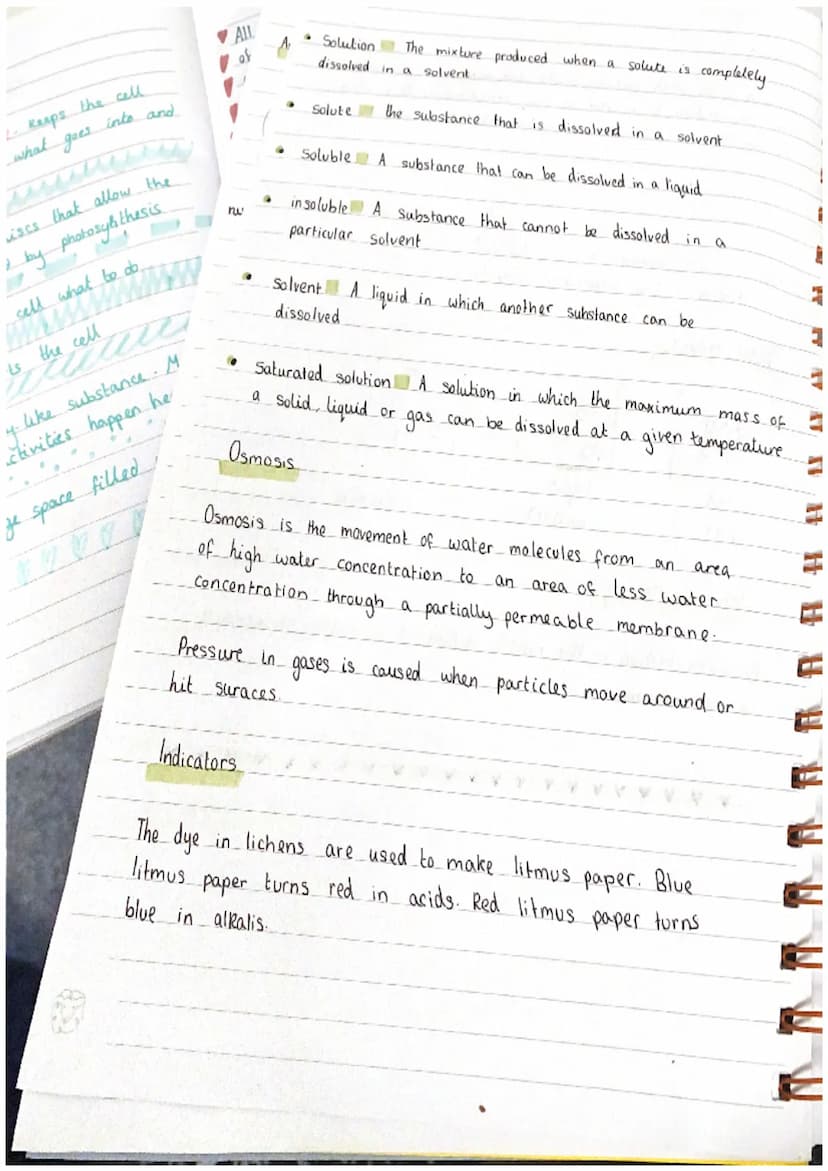 Keeps the cell
what goes into and
iscs that allow the
by photosynthesis
cell what to do
ts the cell
y-like substance. M
ctivities happen he
ge space filled
All
of
A
• Solution The mixture produced when a solute is completely
dissolved in a solvent
• Solute the substance that is dissolved in a solvent
• Soluble A substance that can be dissolved in a liquid
• insoluble A substance that cannot be dissolved in a
particular solvent
• Solvent A liquid in which another substance can be
dissolved
• Saturated solution A solution in which the maximum mass of
a solid, liquid or gas can be dissolved at a given temperature
Osmosis
Osmosis is the movement of water molecules from an area
of high water concentration to an area of less water
concentration through a partially permeable membrane.
Pressure in gases is caused when particles move around or
hit suraces.
Indicators
The dye in lichens are used to make litmus paper. Blue
litmus paper turns red in acids. Red litmus paper turns
blue in alkalis.